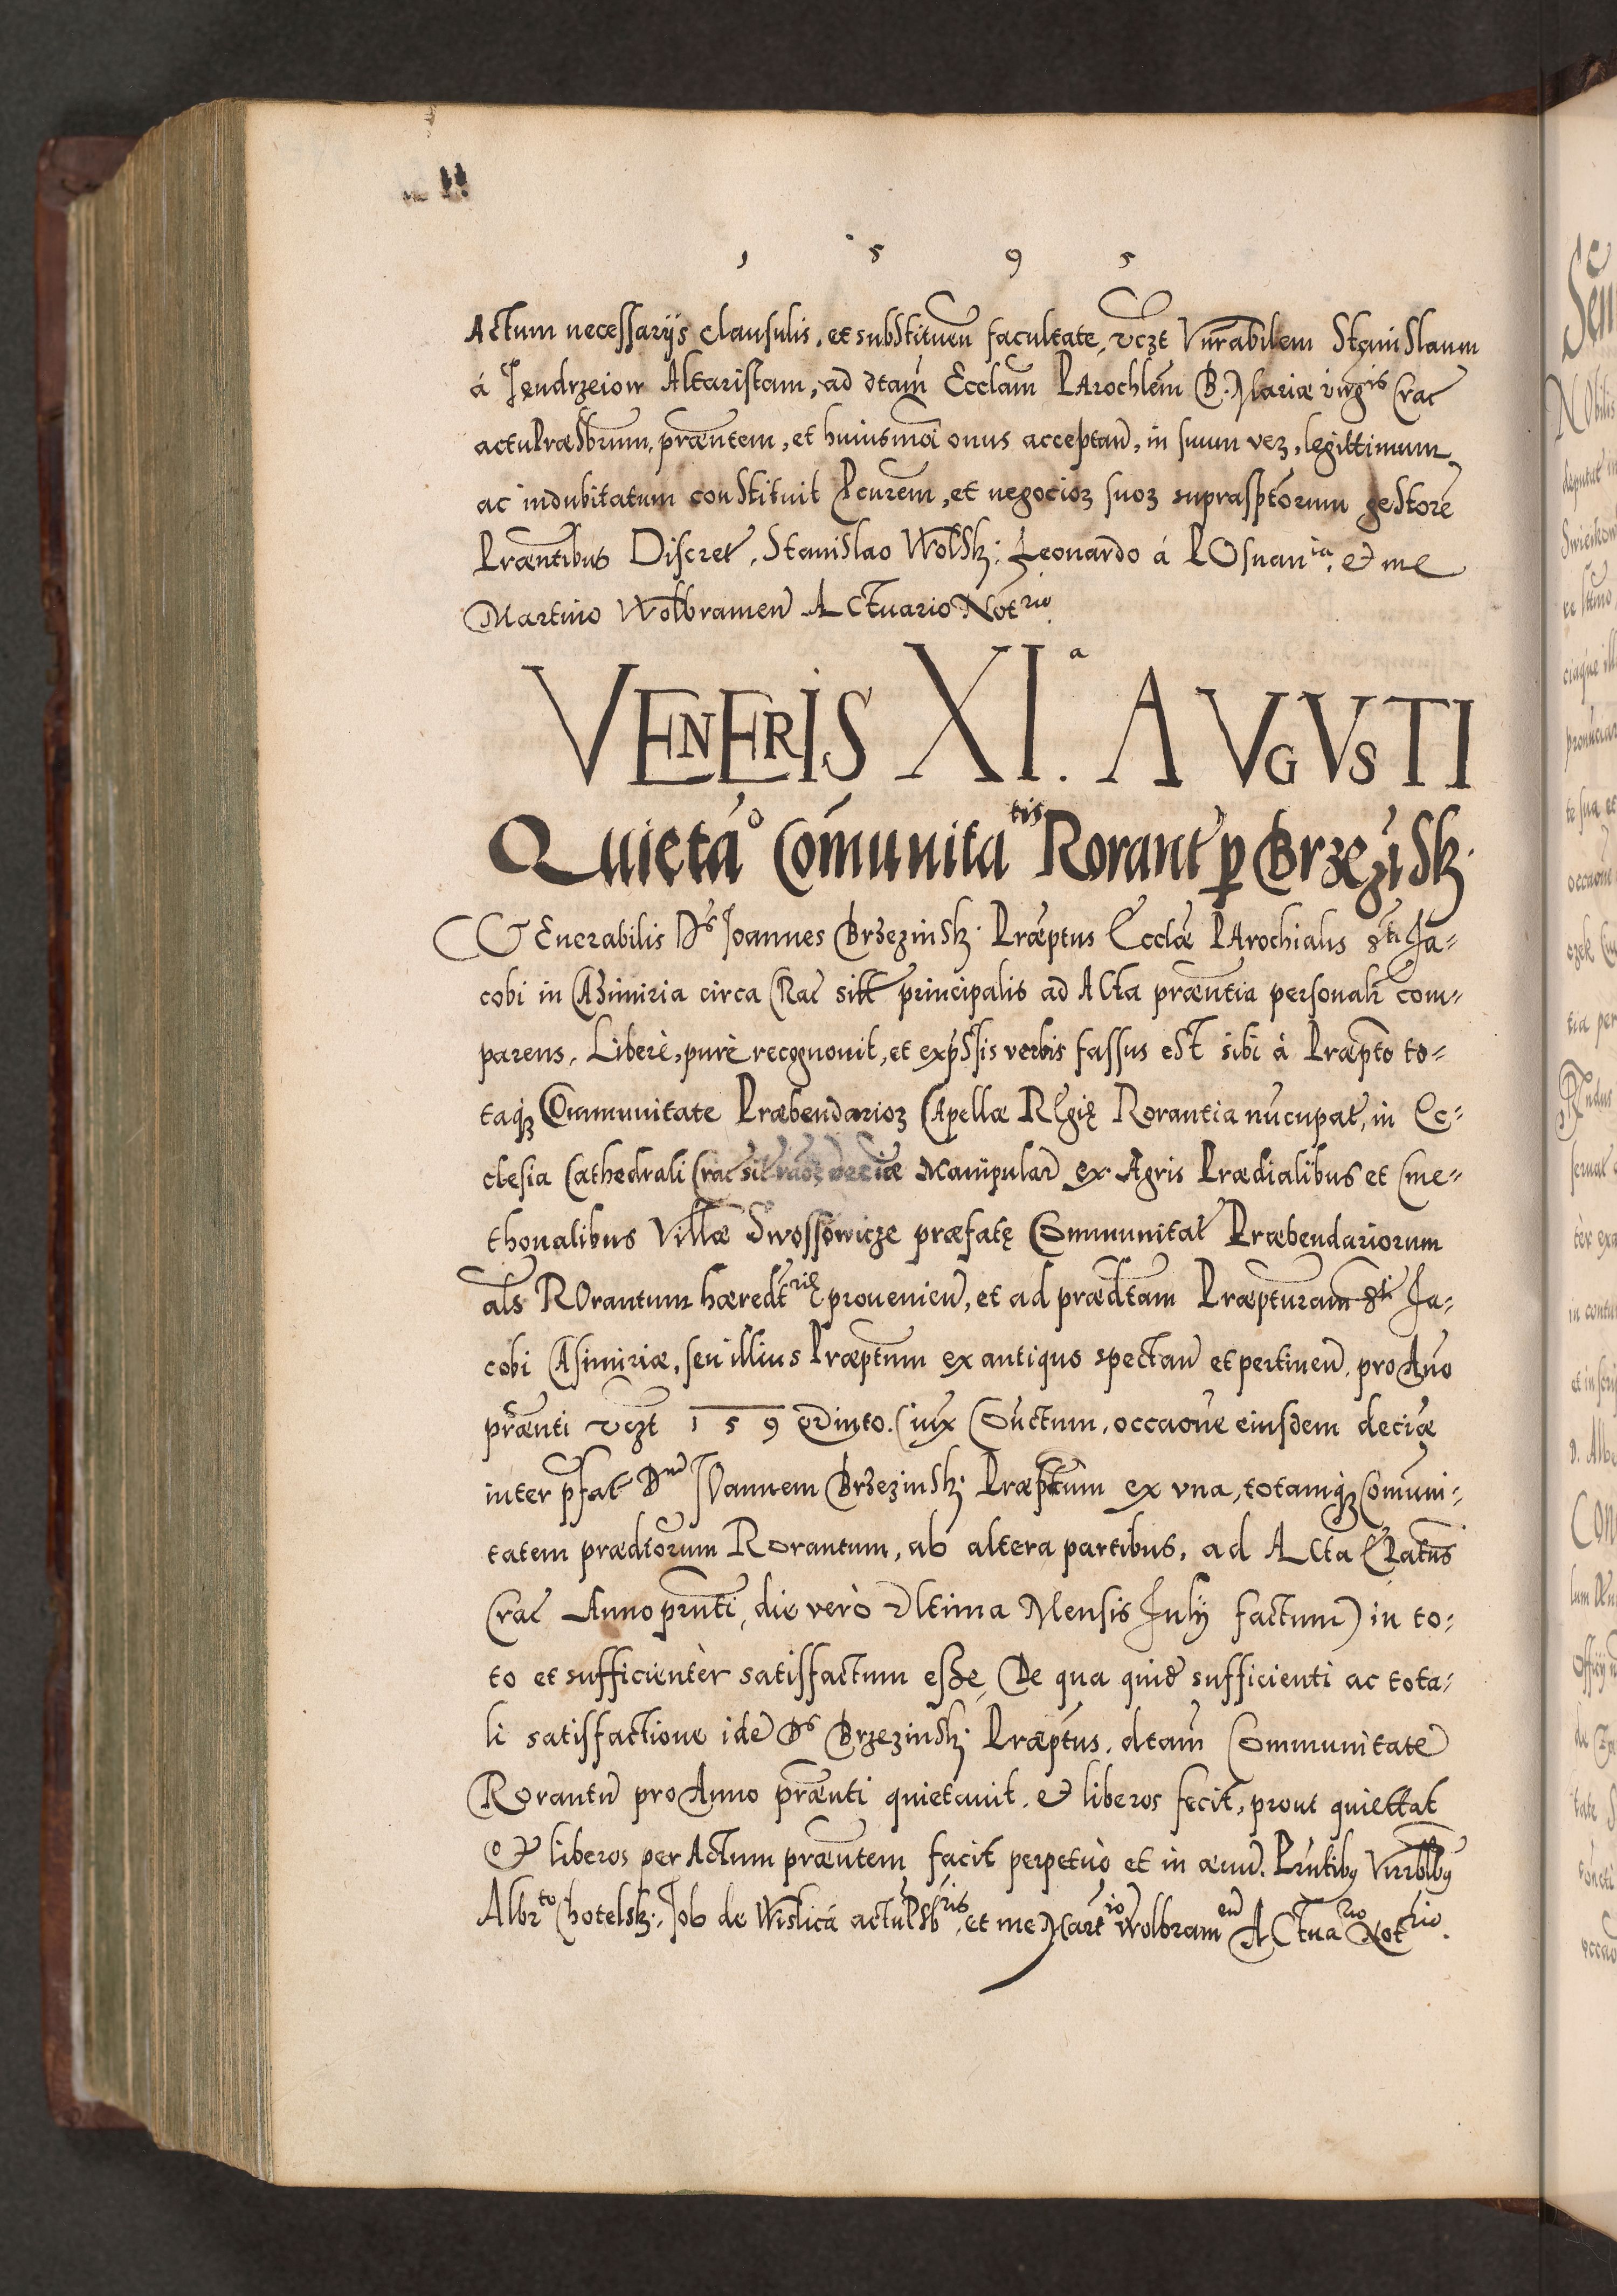 1 5 9 5
Actum necessarijs clausulis, et substituen̄ facultate, vczt Vnrabilem Stanislaum
á Jendrzeiow Altaristam, ad dtam̄ Ecclam̄ PArochlem̄ B. Mariæ virgis Crac̄
actu Præsbrum̄, præntem̄, et huiusmoi onus acceptan̄, in suum vez, legittimum
ac indubitatum constituit Pcurem̄, et negocioꝝ suoꝝ suprasptorum gestorē
Præntibus Discret̄, Stanislao Wolsk: Leonardo á POsnania, et me
Martino Wolbramen̄ ACtuario Notrio.
VENERIS XI.a AVGVSTI
Quietao Com̄unitatis Rorant̄ p Brzezīsk.
VEnerabilis Ds Joannes Brzezinsk. Præptus Ecclæ PArochialis Sti Ja=
cobi in CAzimiria circa CRac̄ sitt principalis ad ACta præntia personalr com=
parens, Liberè, purè recognouit, et expssis verbis fassus est sibi à Præpto to=
taqꝫ Communitate Præbendarioꝝ CApellæ REgię Rorantia nūcupat̄, in Ec=
clesia Cathedrali Crac̄ sit deciæ Manipular̄ ex Agris Prædialibus et Cme=
thonalibus Villæ Swossowicze præfatę Communitat̄ Præbendariorum
als ROrantum hæredtrię prouenien̄, et ad prædtam Præpturam Sti Ja=
cobi CAsimiriæ, seu illius Præptum ex antiquo spectan̄ et pertinen̄, pro Ano
prænti vczt 1 5 9 Qvinto. (iux Cōnctum, occaone eiusdem deciæ
inter pfat Dnū JOannem Brzezinsk: Præptum ex vna, totamqꝫ Com̄uni=
tatem prædtorum Rorantum, ab altera partibus, ad ACta EPatus
Crac̄ Anno prnti, die verò Vltima Mensis Julij factum) in to=
to et sufficientèr satisfactum esse, De qua quid̄ sufficienti ac tota=
li satisfactione idē Ds Brzezinsk: Præptus, dtam̄ Communitatē
Rorantū pro Anno prænti quietauit, et liberos fecit, prout quiettat
et liberos per Actum præntem facit perpetuò et in æuū. Prntibꝰ Vnrblbꝰ
Albrto Chotelsk:, Job de Wislicá actu Psbris, et me Martio Wolbramen̄ ACtuario Notrio.